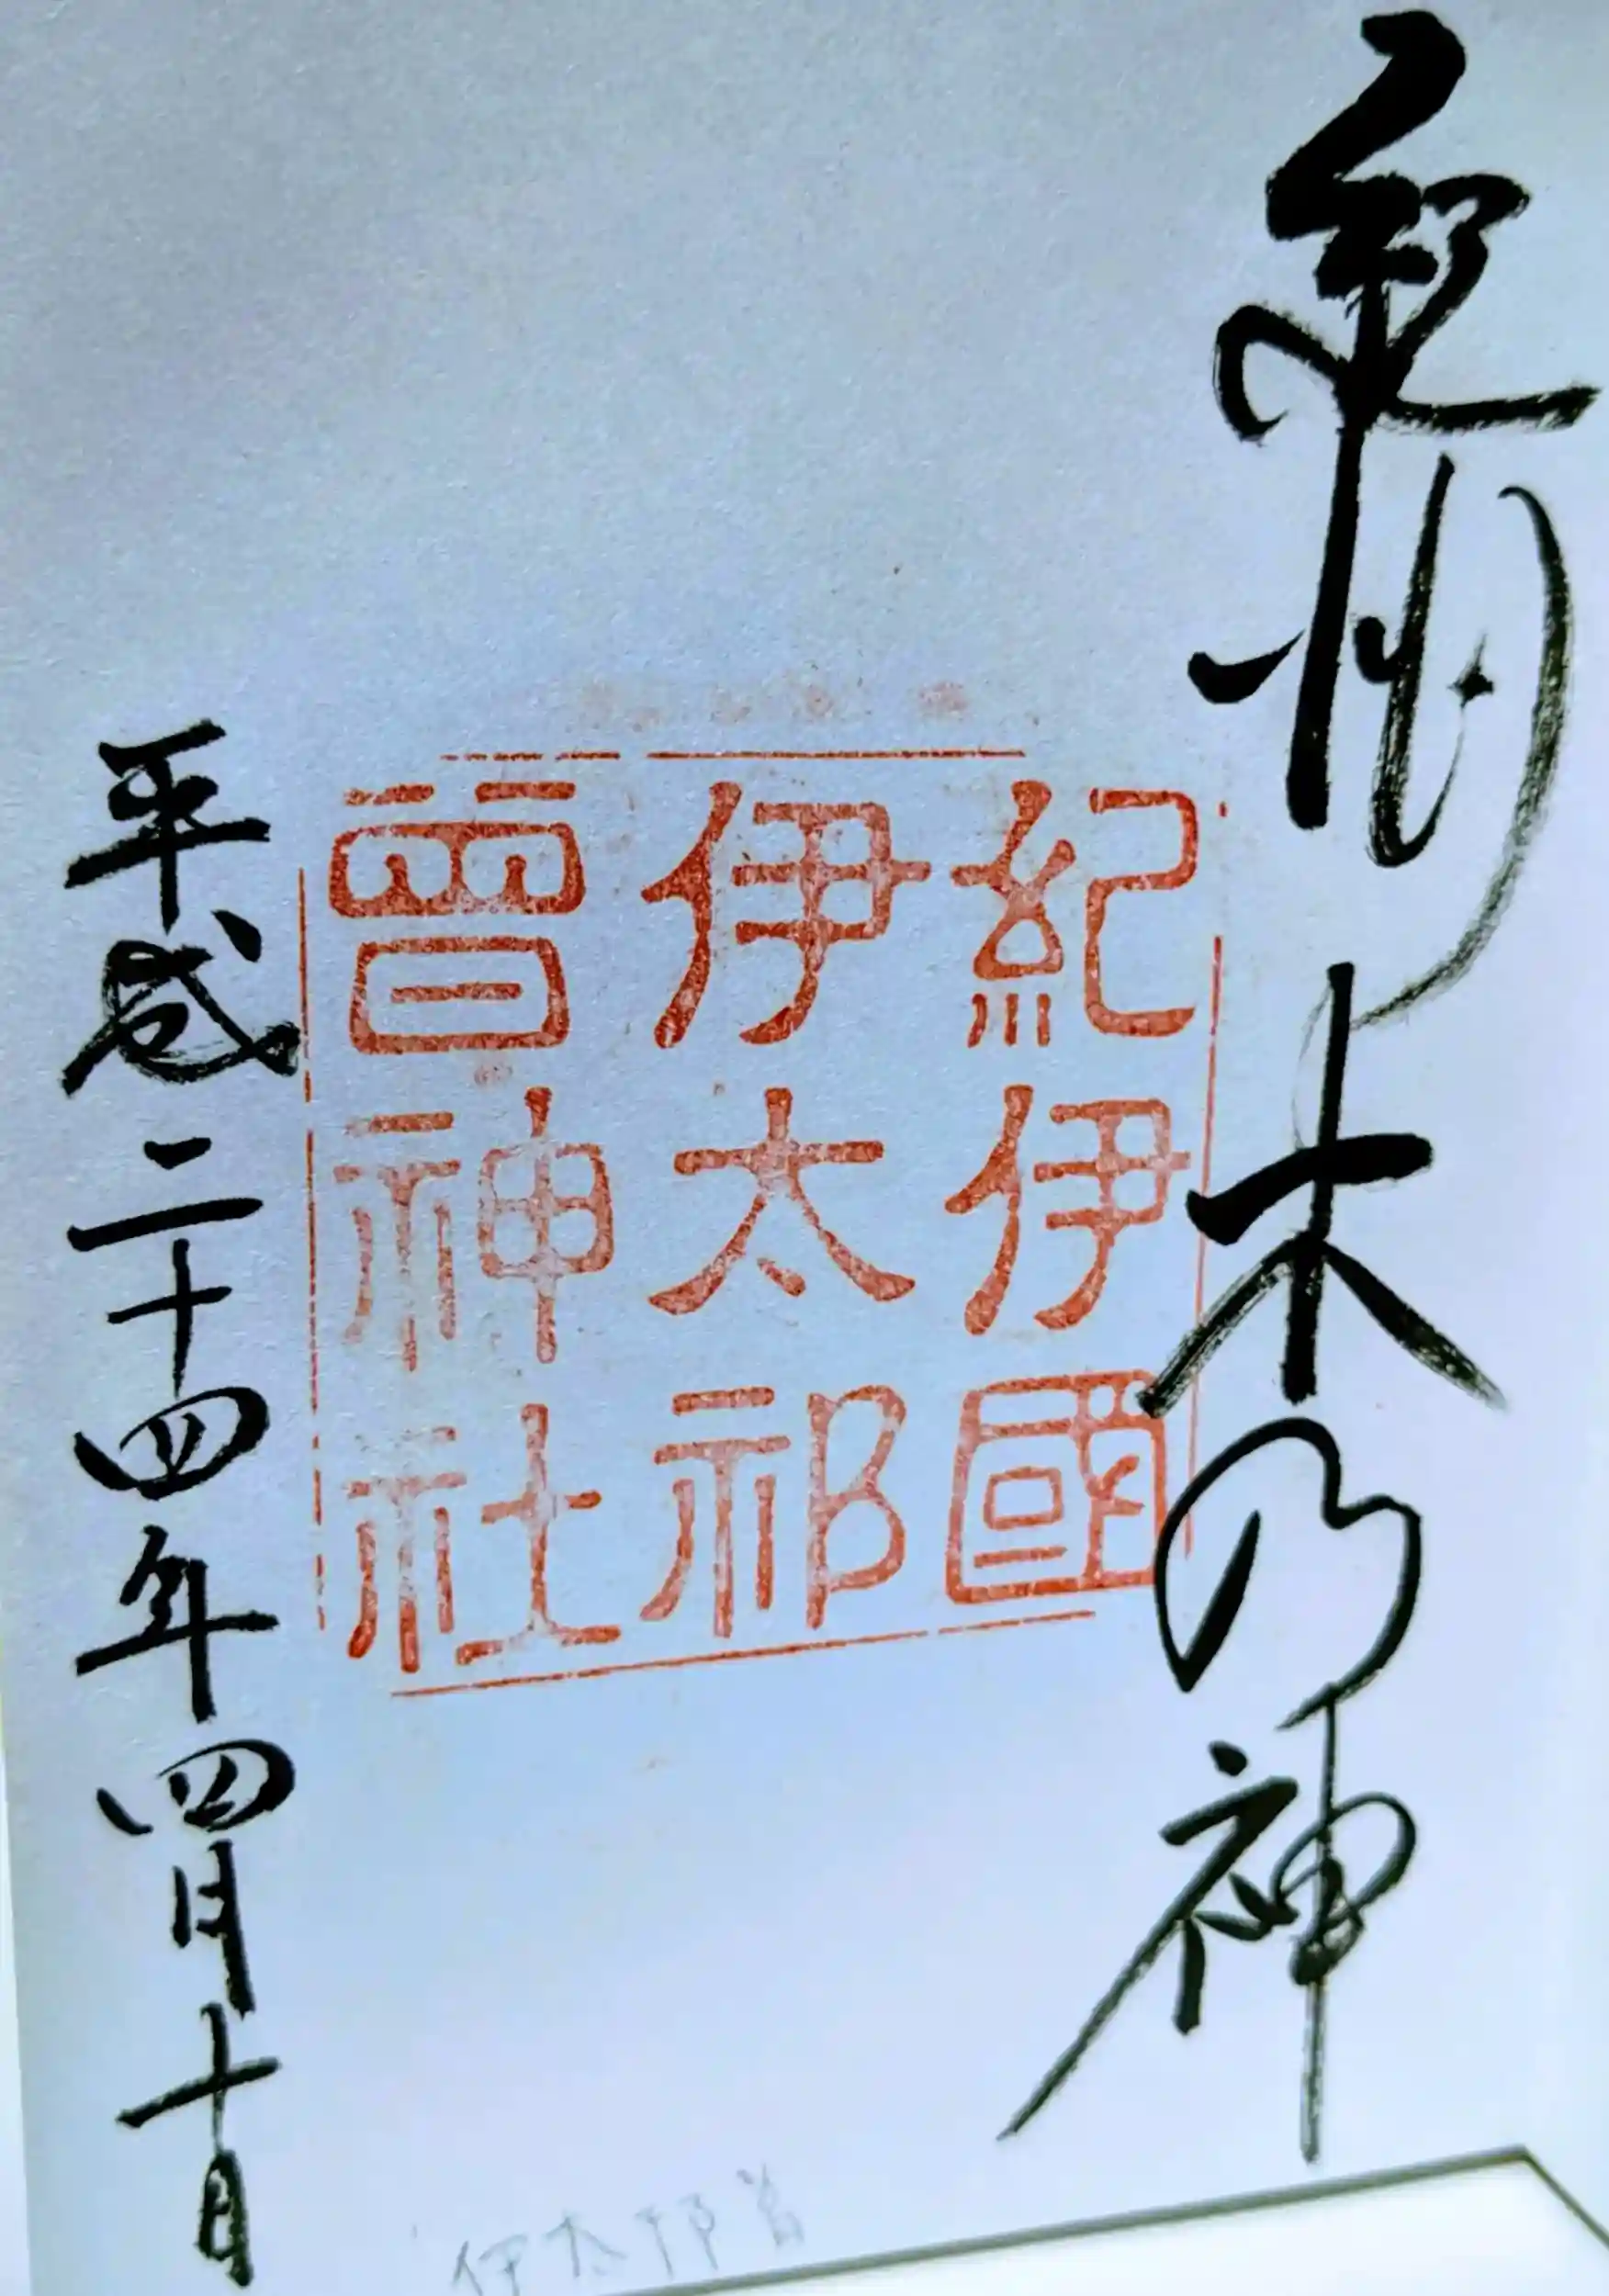 紀州木の神
紀伊國
伊太祁
曾神社
平成二十四年四月十日
伊太祁曽